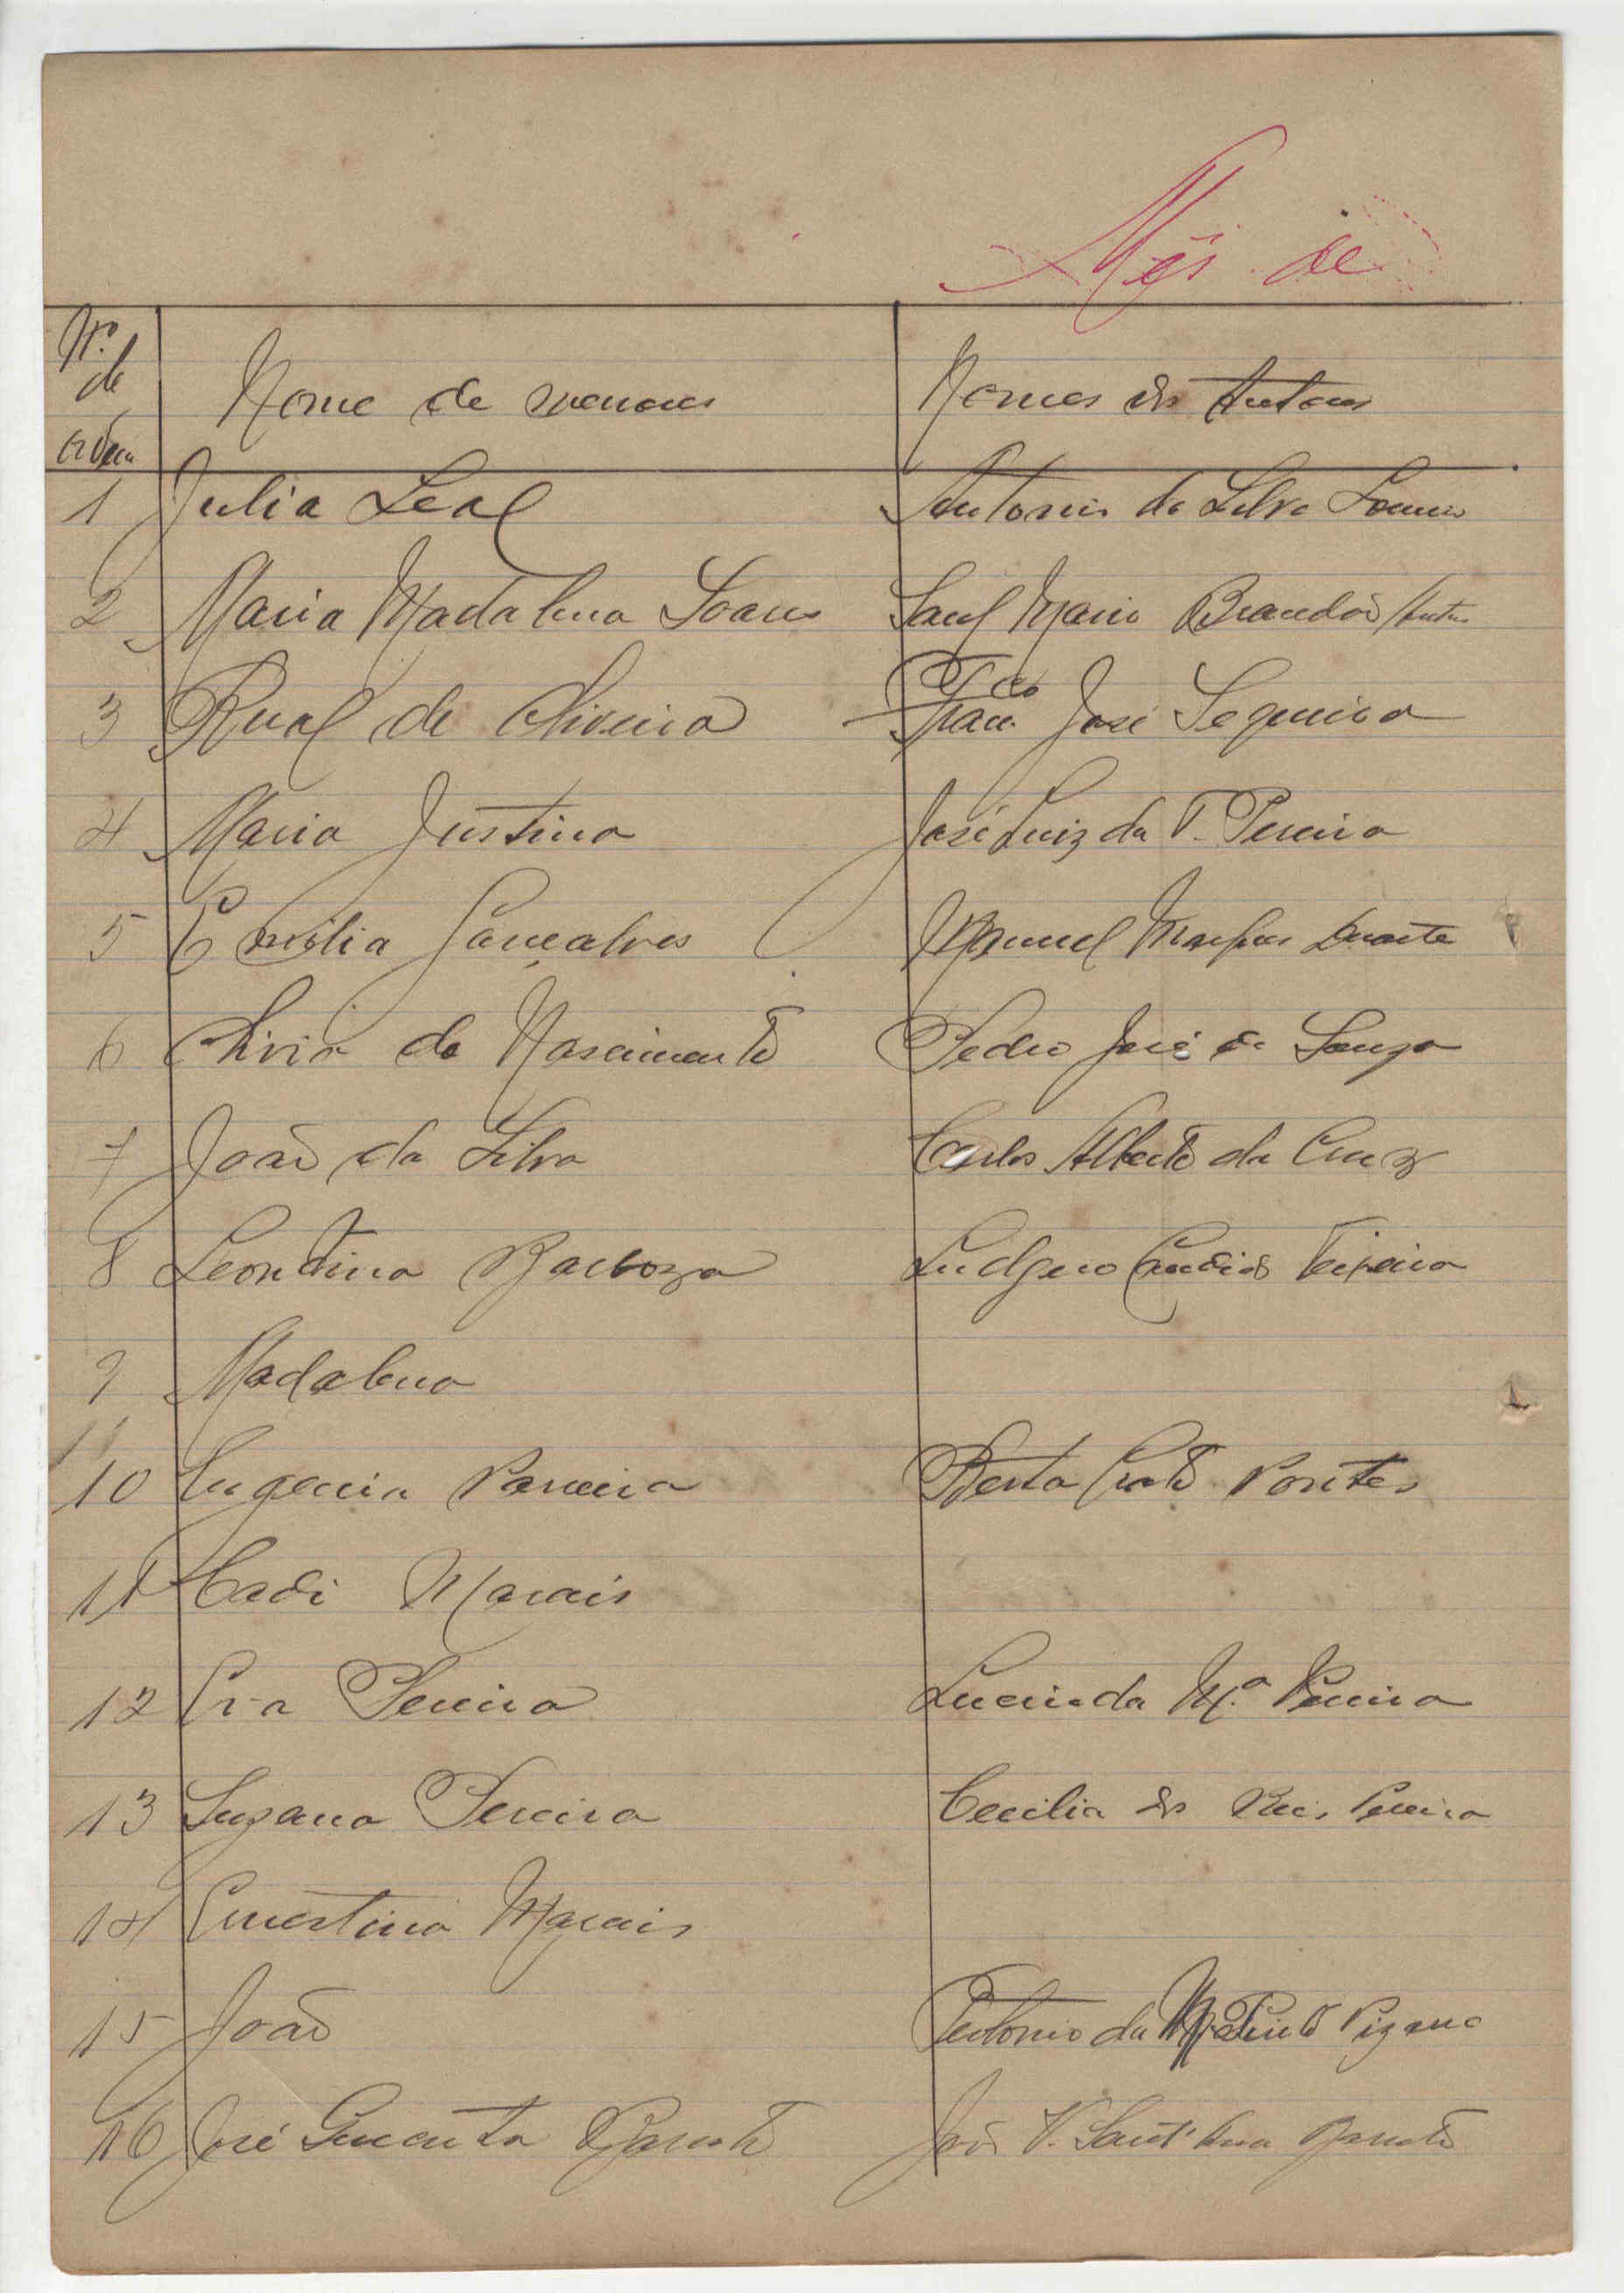 Mês de
Nº de ordem
Nome de menores
Nomes dos tutores
1 Julia Leal Antonio da Silva
2 Maria Madalena Soares Saul Mario Brandão
3 Rual de Oliveira Franco José Sequeira
4 Maria Justina José Luiz da T. Pereira
5 Emilia Gonçalves Manuel Duarte
6 Olivia do Nascimento Pedro José de Souza
7 João da Silva Carlos Alberto da Cruz
8 Leontina Barboza Ludgero Candido Teixeira
9 Madalena
10 Eugenia Parreira Berta Pontes
11 Cadi Morais
12 Eva Pereira Lucinda Mª Pereira
13 Suzana Pereira Cecilia dos Reis Pereira
14 Ernestina Morais
15 João Antonio da Pinto
16 José Barreto João V. Sant'Ana Barreto